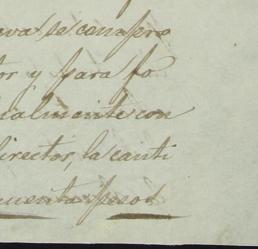 ava se compro
tor y para fo
ialmente con
director, la canti
cuenta pesos